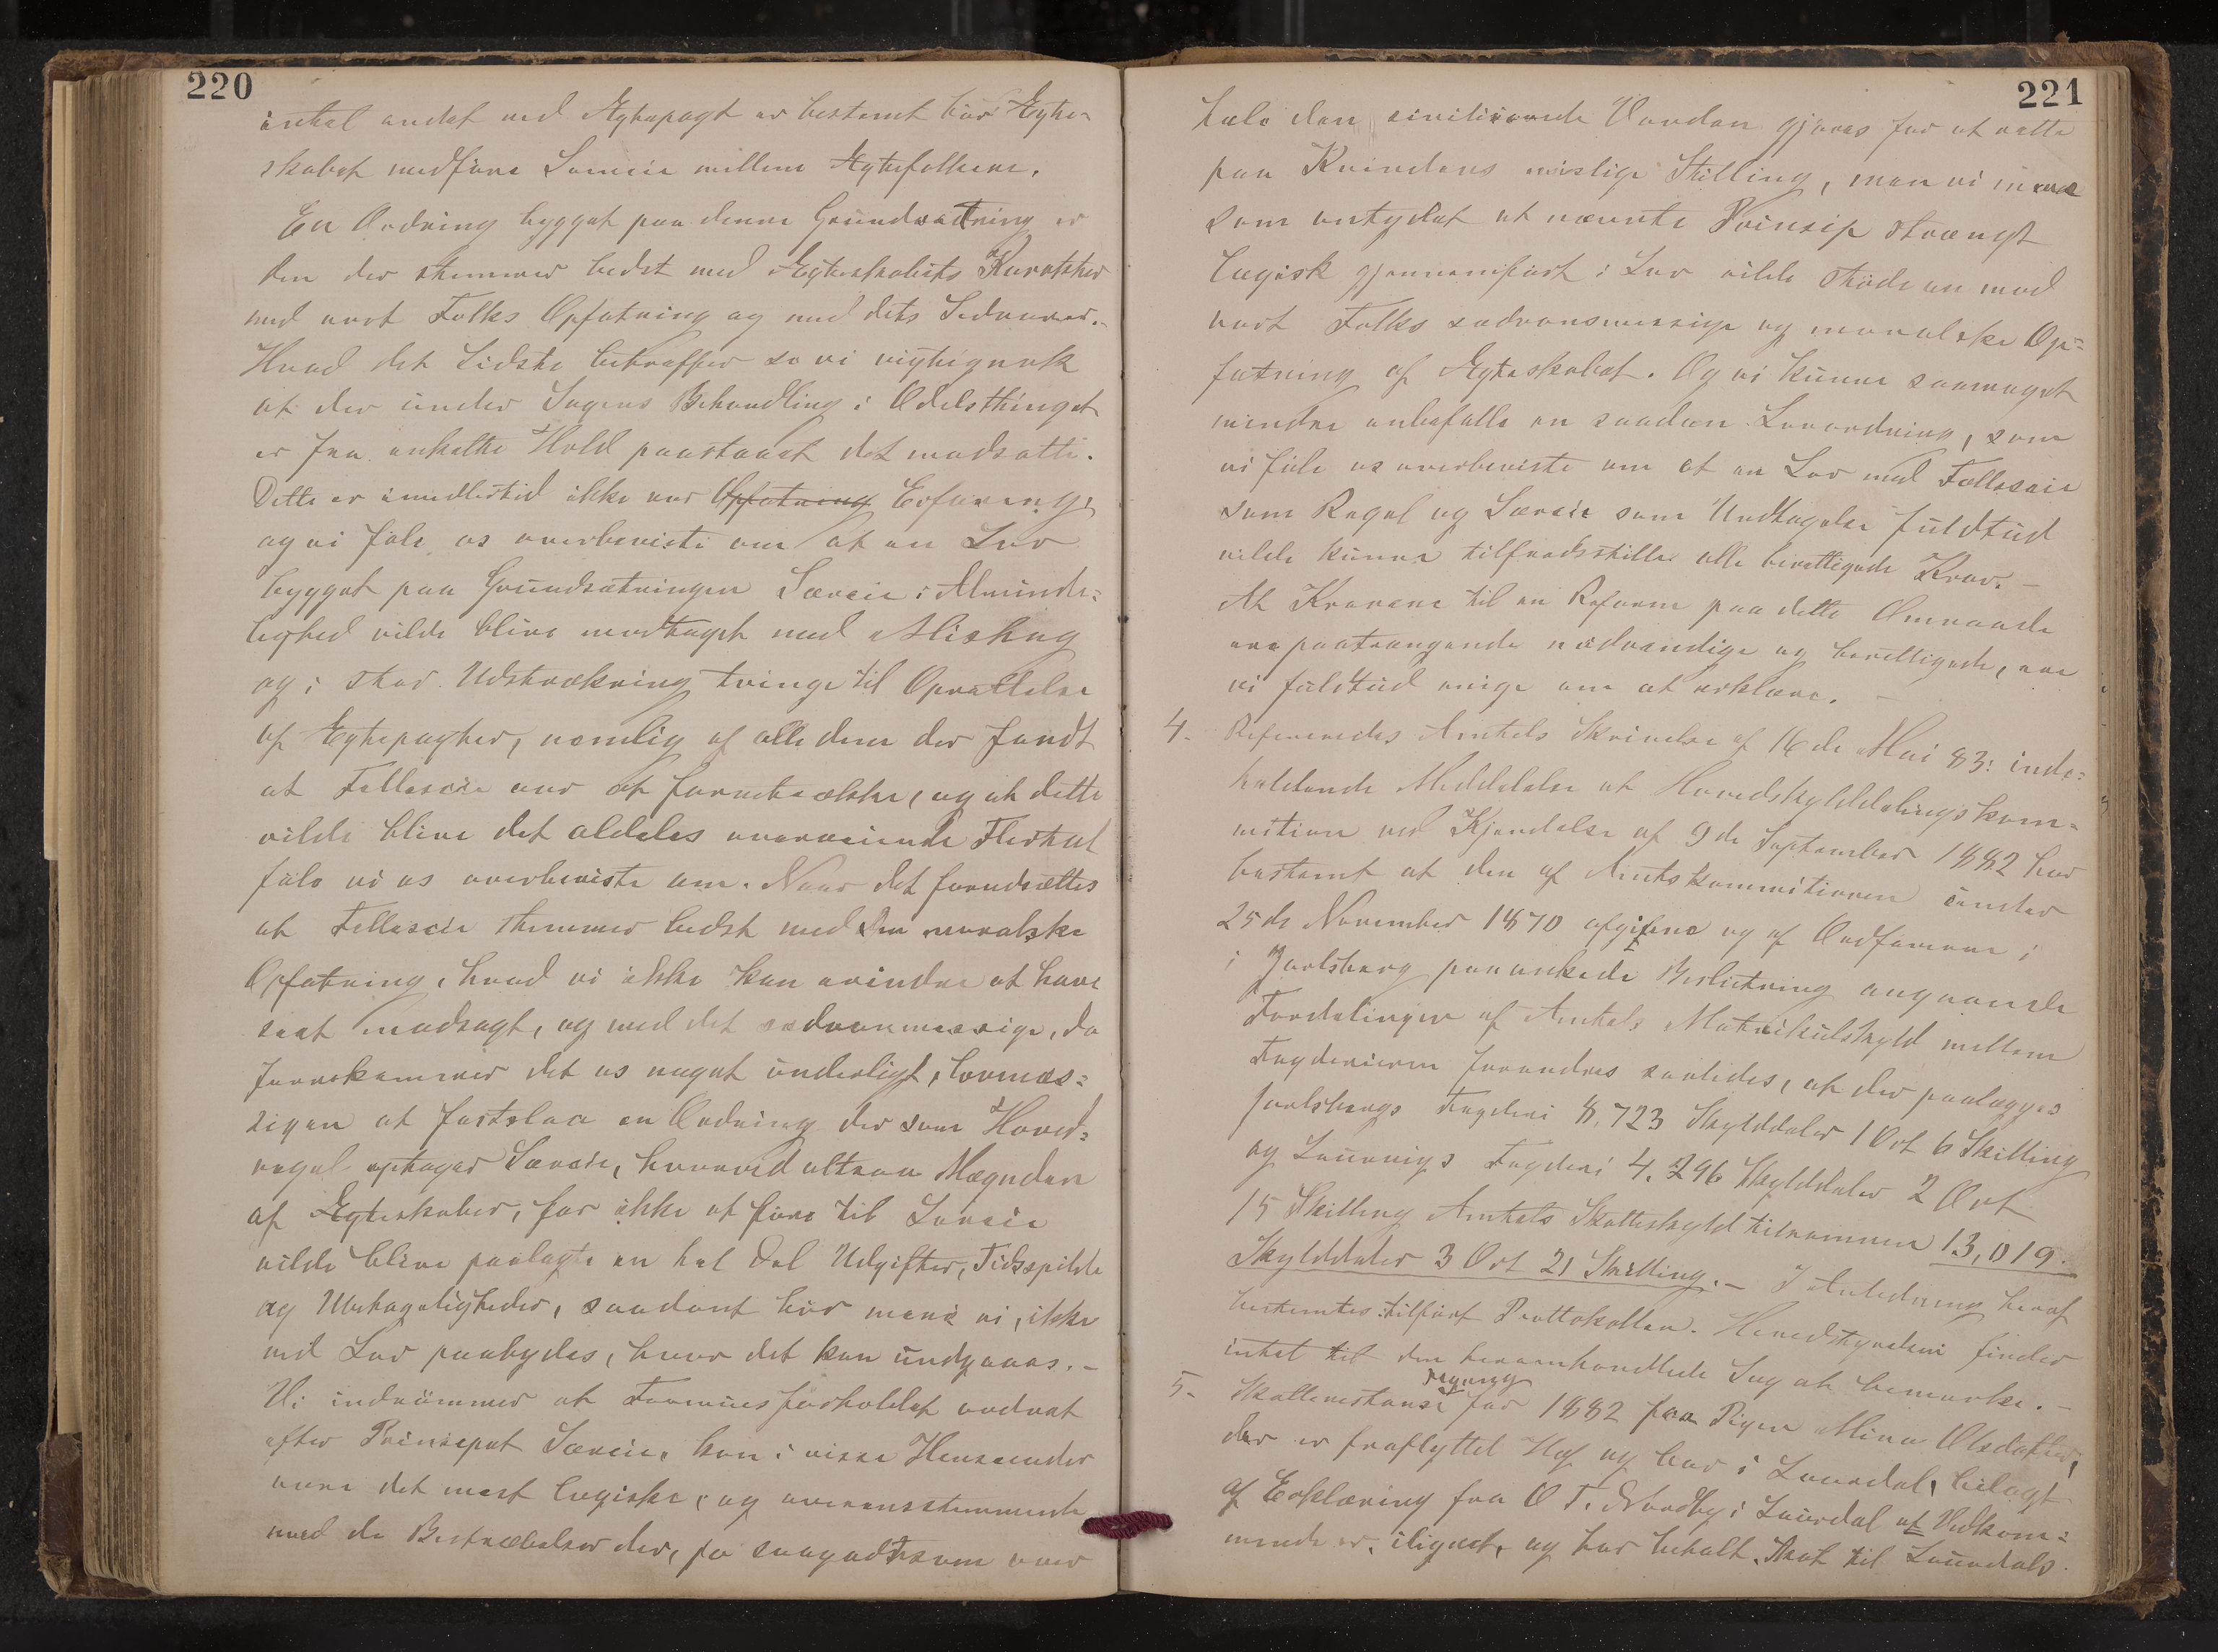 220
intet andet ved Ægtepagt er bestemt bør Ægte-
skabet medføre Særeie mellem Ægtefolkene.
En Ordning bygget paa denne Grundsætning er
den der stemmer bedst med Ægteskabets Karakter
med vort Folks Opfatning og med dets Sedvaner.
Hvad det Sidste betræffer se vi rigtignok
at der under Sagens Behandling i Odelsthinget
er fra enkelte Hold paastaaet det modsatte.
Dette er imidlertid ikke vor Opfatning Erfaring,
og vi føle os overbeviste om at en Lov
bygget paa Grundsætningen Særeie i Alminde-
lighed vilde blive modtaget med Mishag
og i stor Udstrækning tvinge til Oprettelse
af Ægtepagter, nemlig af alle dem der fandt
at Felleseie var at foretrække, og at dette
vilde blive det aldeles overveiende Flertal
føle vi os overbeviste om. Naar det forudsættes
at Felleseie stemmer bedst med den moralske
Opfatning, hvad vi ikke kan erindre at have
seet modsagt, og med det sedvanmæssige, da
forekommer det os noget underligt, lovmæs-
sigen at fastslaa en Ordning der som Hoved-
regel optager Særeie, hvorved altsaa Mægnden
af Egteskaber, for ikke at føre til Særeie
vilde blive paalagte en hel Del Udgifter, Tidsspilde
og Ubehageligheder, saadant bør mene vi, ikke
ved Lov paabydes, hvor det kan undgaaes. –
Vi indrømmer at Formuesforholdet ordnet
efter Prinsipet Særeie, kan i visse Henseender
være det mest logiske, og overensstemmende
med de Bestræbelser der, på saagodtsom over
221
hele den civiliserende Verden gjøres for at rette
paa Kvindens mislige Stilling, men vi mene
som antydet at nævnte Prinsip strængt
logisk gjennemført i Lov vilde støde an mod
vort Folks sedvansmessige og moralske Op-
fatning af Ægteskabet. Og vi kunne saameget
mindre anbefalle en saadan Lovordning, som
vi føle os overbeviste om at en Lov med Felleseie
som Regel og Særeie som Undtagelse fuldtud
vilde kunne tilfredsstille alle berettigede Krav. –
At Kravene til en Reform paa dette Omraade
ere paatrængende nødvendige og berettigede, ere
vi fuldtud enige om at erklære. –
4. Refereredes Amtets Skrivelse af 16de Mai 83: inde-
holdende Meddelelse at Hovedskylddelingskom-
mition ved Kjendelse af 9de September 1882 har
bestemt at den af Amtskommitionen under
25de November 1870 afgifne og af Ordførerne i
i Jarlsberg paaankede Beslutning angaaende
Fordelingen af Amtets Matrikulskyld mellem
Fogderierne forandres saaledes, at der paalægges
Jarlsbergs Fogderi 8.723 Skylddaler 1 Ort 6 Skilling
og Laurvigs Fogderi 4.296 Skylddaler 2 Ort
15 Skilling Amtets Skatteskyld tilsammen 13,019.
Skylddaler 3 Ort 21 Skilling. – I Anledning heraf
bestemtes tilført Prottokollen. Heredstyrelsen finder
intet til den heromhandlede Sag at bemærke. –
5. Skatterestanse regning for 1882 paa Pigen Mina Olsdatter,
der er fraflyttet Hof og bor i Laurdal, bilagt
af Erklæring fra O T. Nordby i Laurdal at Vedkom-
mende er iligned, og har betalt Skat til Laurdals